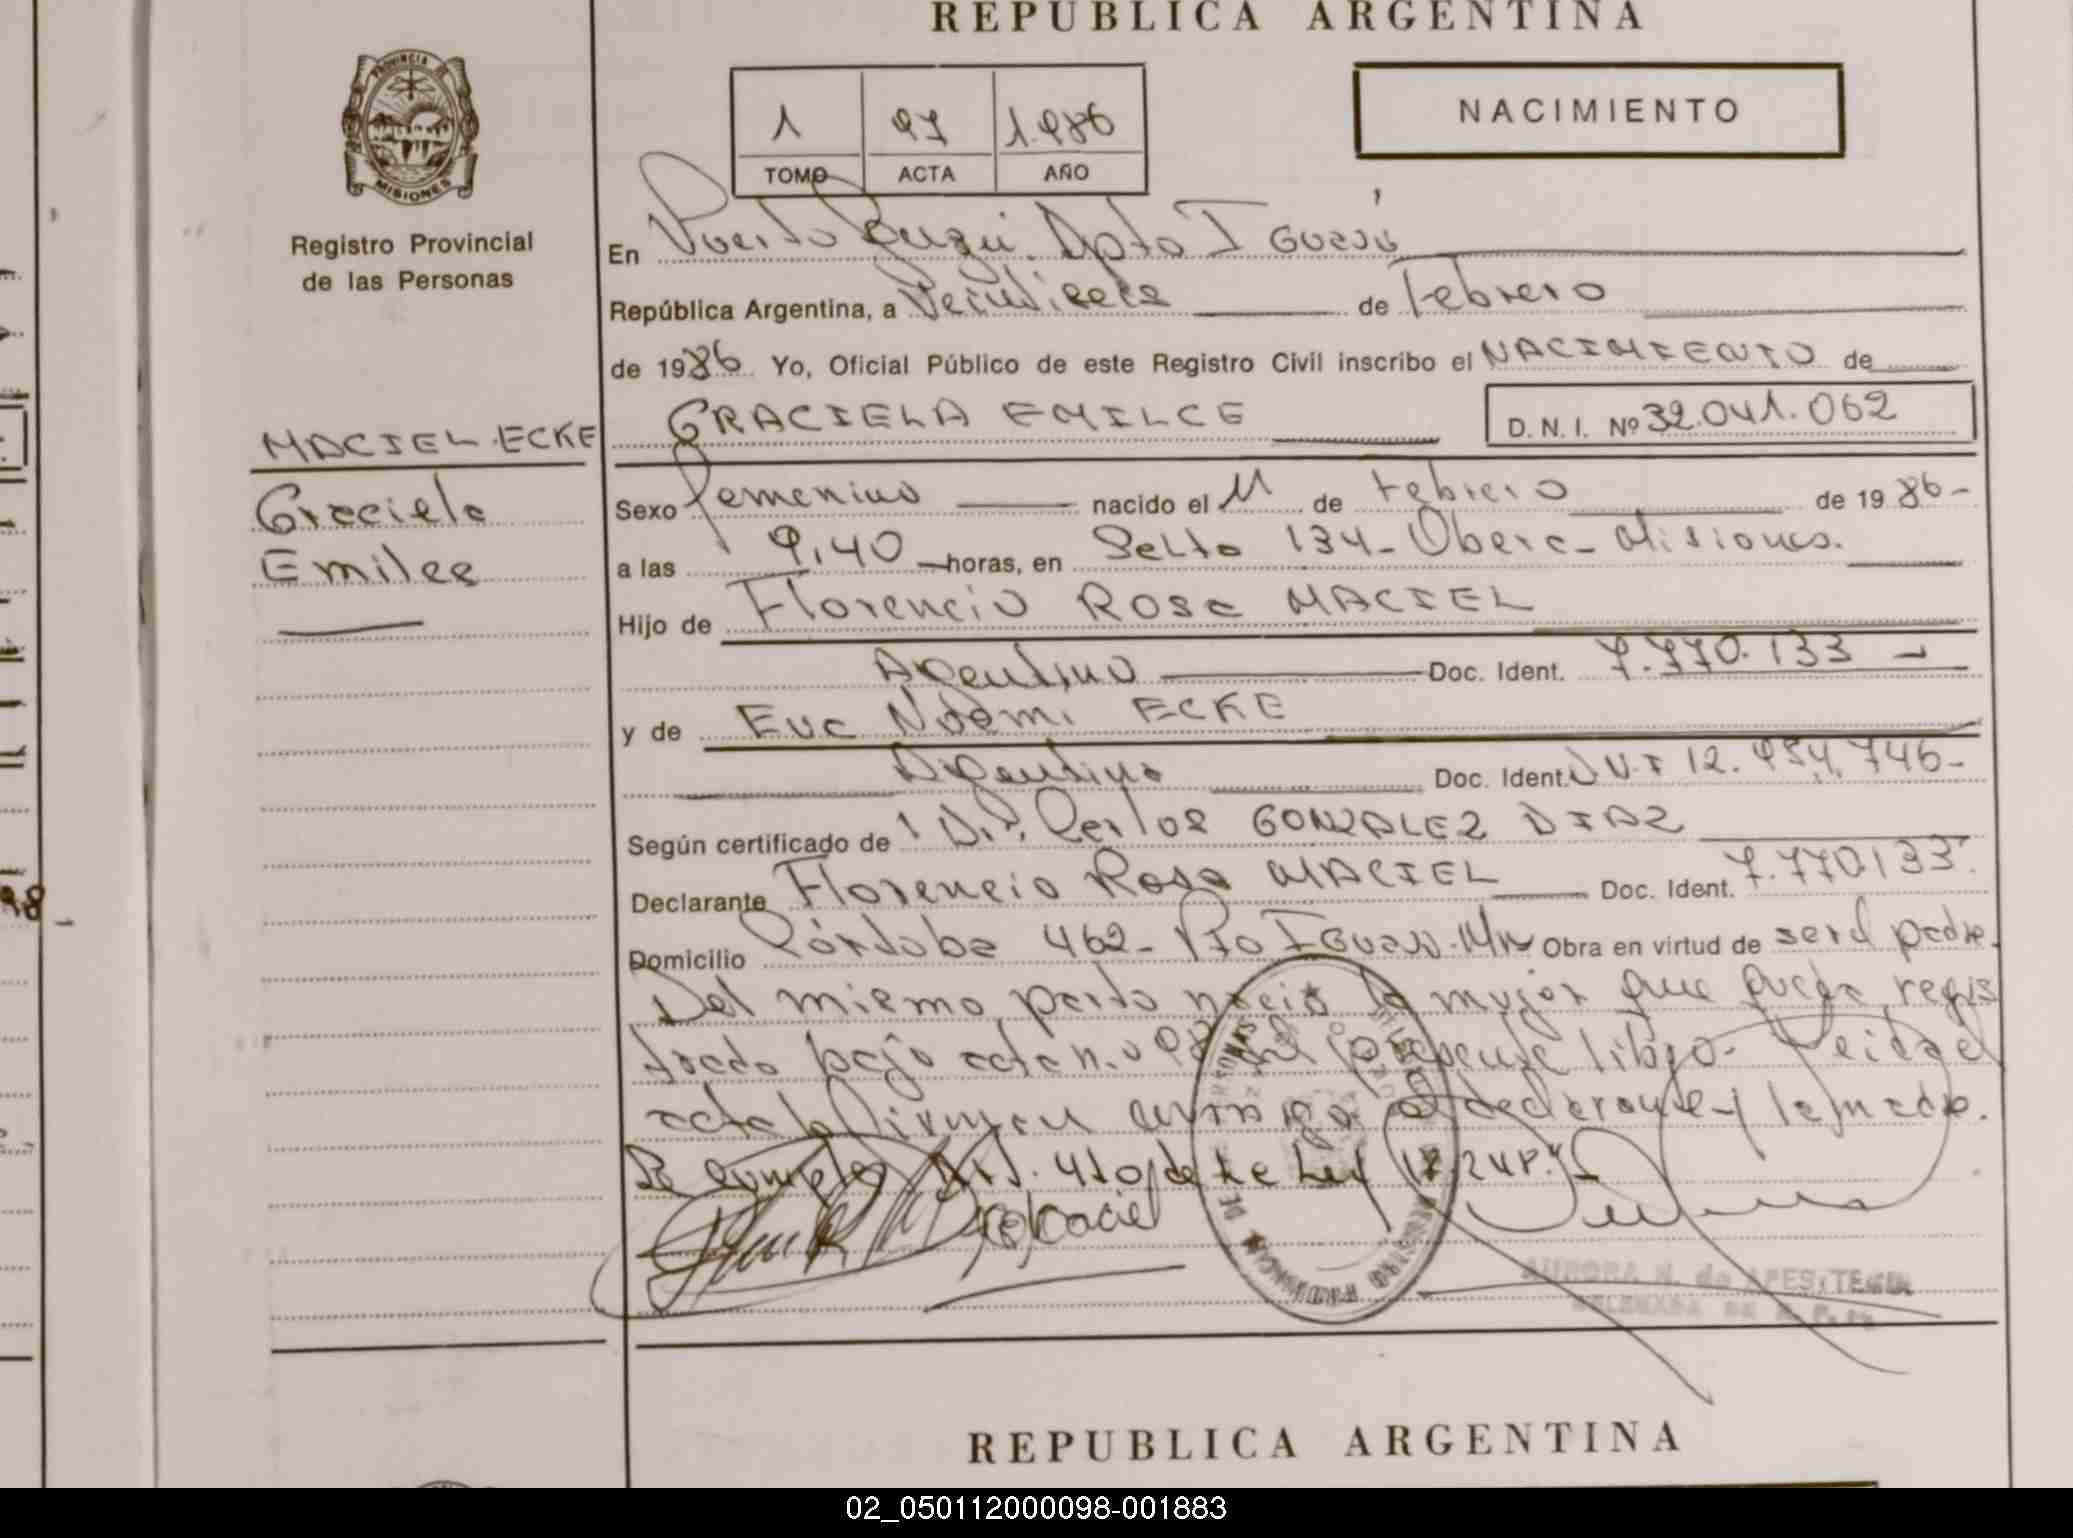 REPUBLICA ARGENTINA
PROVINCIA DE
MISIONES
Registro Provincial
de las Personas
1 97 1.986
TOMO ACTA AÑO
NACIMIENTO
En Puerto Dpto Iguazú
República Argentina, a Veintisiete de Febrero
de 1986 Yo, Oficial Público de este Registro Civil inscribo el NACIMIENTO de
MACIEL ECKE
GRACIELA EMILCE
D. N. I. Nº 32.041.062
Graciela
Emilce
Sexo femenino nacido el 11 de Febrero de 1986-
a las 9,40 horas, en Selto 134- Obera- Misiones.
Hijo de Florencio Rosa MACIEL
Argentino Doc. Ident. 7.770.133 -
y de Eva Noemi ECKE
Argentina Doc. Ident. 12.934.746-
Según certificado de Dr. Carlos GONZALEZ DIAZ
Declarante Florencio Rosa MACIEL Doc. Ident. 7.770133.
Domicilio Córdoba 462- Pto Iguazu. Mn Obra en virtud de ser el padre.
Del mismo parto nació la mujer que queda regis
trada bajo acta n.o 98 del presente libro- Leida el
acta la firman conmigo el declarante y la madre.
Se cumple Art. 4to de la Ley 18.248.
AURORA N. de APESTEGUI
DELEGADA
98
REPUBLICA ARGENTINA
02_050112000098-001883